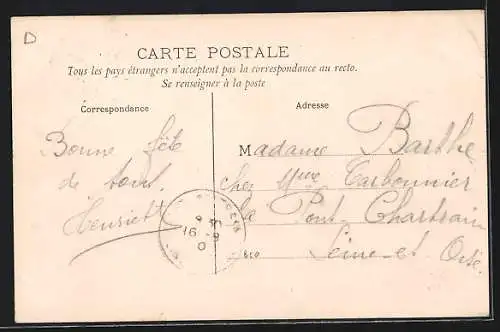 D
CARTE POSTALE
Tous les pays étrangers n'acceptent pas la correspondance au recto.
Se renseigner à la poste
Correspondance
Adresse
Bonne fête
de tout.
Henriett
Madame Barthe
chez Mme Carbonnier
Le Pont Chartrain
Seine et Oise
16 9